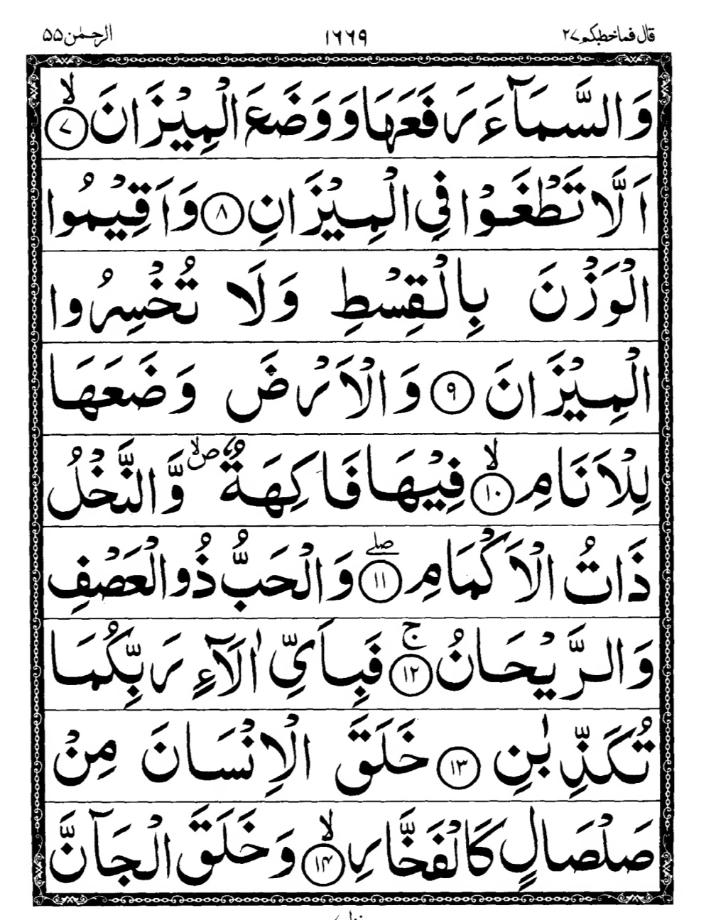 قال فما خطبكم ٢٧ ١٦٦٩ الرحمٰن ٥٥
وَالسَّمَآءَ رَفَعَهَا وَوَضَعَ الْمِيْزَانَ ۙ‏﴿۷﴾
اَلَّا تَطْغَوْا فِي الْمِيْزَانِ ﴿۸﴾ وَاَقِيْمُوا
الْوَزْنَ بِالْقِسْطِ وَلَا تُخْسِرُوا
الْمِيْزَانَ ﴿۹﴾ وَالْاَرْضَ وَضَعَهَا
لِلْاَنَامِ ۙ﴿۱۰﴾ فِيْهَا فَاكِهَةٌ ۪ۙ وَّالنَّخْلُ
ذَاتُ الْاَكْمَامِ ۖ﴿۱۱﴾ وَالْحَبُّ ذُو الْعَصْفِ
وَالرَّيْحَانُ ۚ﴿۱۲﴾ فَبِاَيِّ اٰلَآءِ رَبِّكُمَا
تُكَذِّبٰنِ ﴿۱۳﴾ خَلَقَ الْاِنْسَانَ مِنْ
صَلْصَالٍ كَالْفَخَّارِ ۙ﴿۱۴﴾ وَخَلَقَ الْجَآنَّ